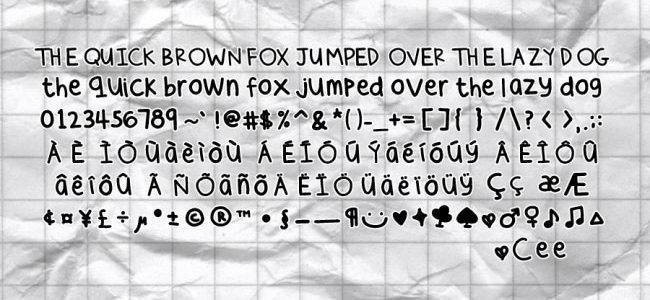 THE QUICK BROWN FOX JUMPED OVER THE LAZY DOG
the quick brown fox jumped over the lazy dog
0123456789~` !@#$%^&*()-_+=[]{ } /\?< >,.:;
À È Ì Ò Ù à è ì ò ù Á É Í Ó Ú Ý á é í ó ú ý Â Ê Î Ô Û
â ê î ô û Ã Ñ Õ ã ñ õ Ä Ë Ï Ö Ü ä ë ï ö ü ÿ Ç ç æ Æ
¢ ¤ ¥ £ ÷ µ ° ± © ® ™ • § – — ¶ ☺ ♥ ✦ ♣ ♠ ♥ ♂ ♀ ♪ ♫ △
♥Cee